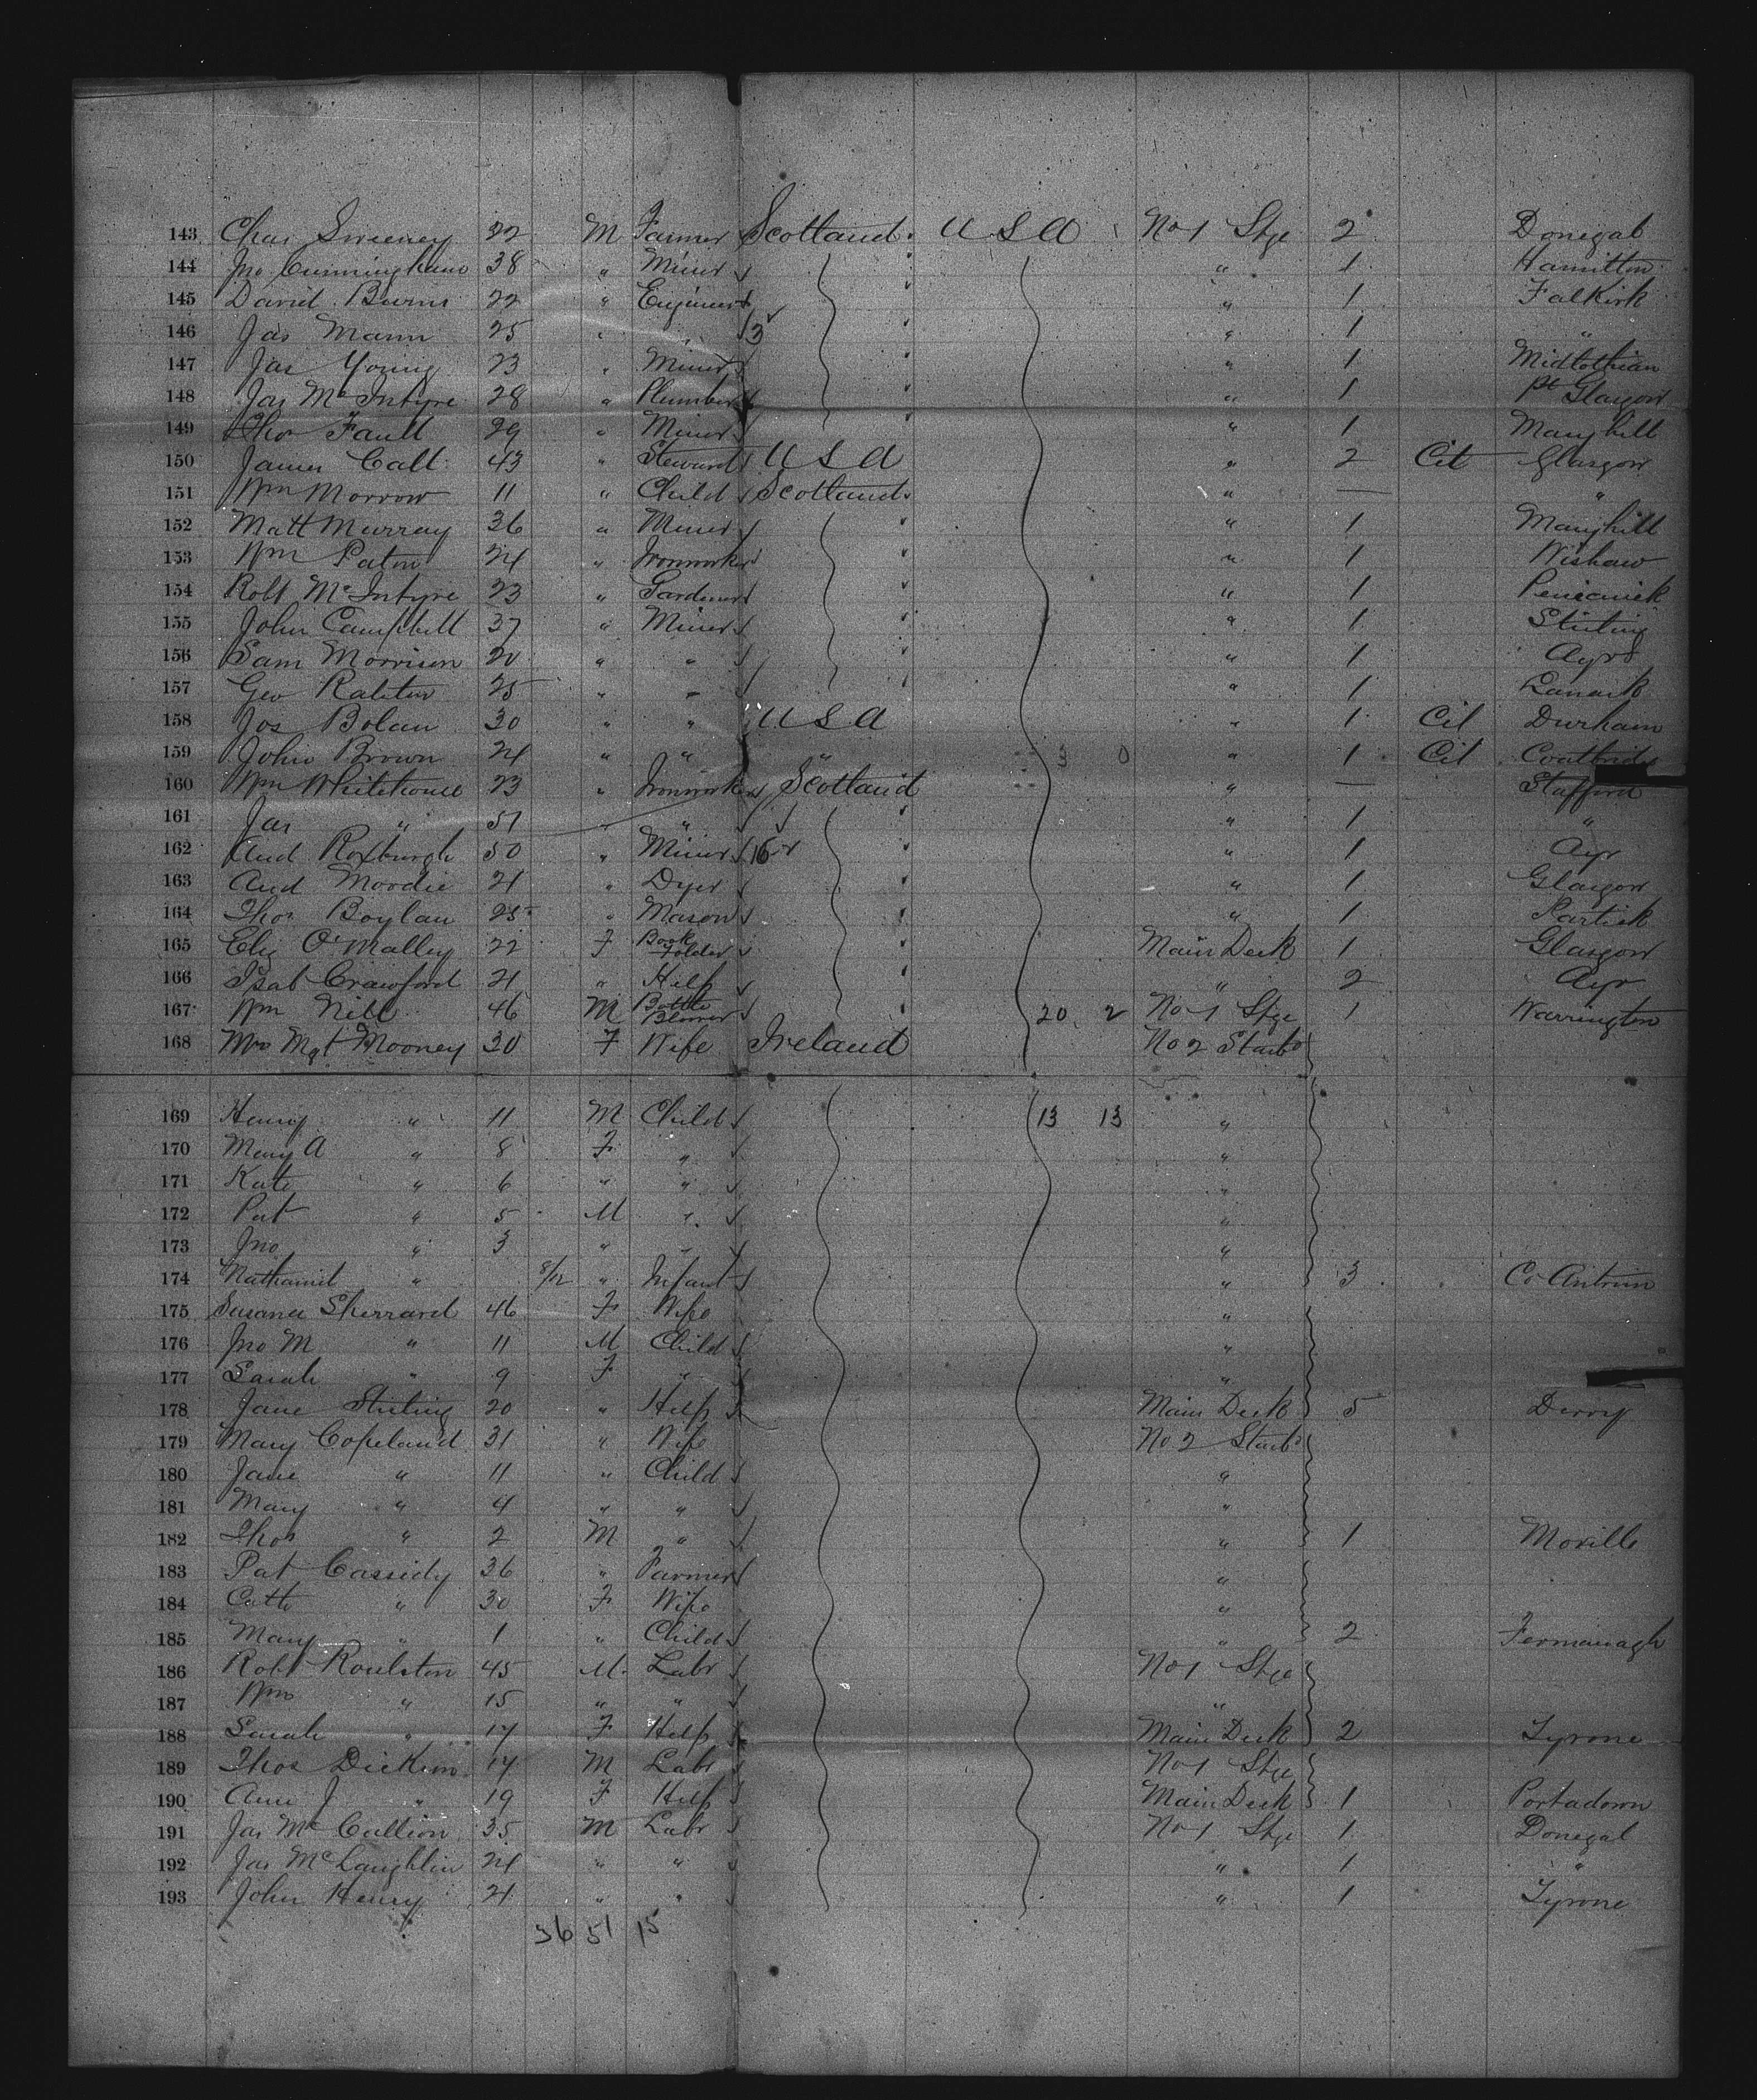 143 Chas Sweeney 22 M Farmer Scotland. U S A No 1 Stge 2 Donegal
144 Jno Cunningham 38 " Miner " 1 Hamilton
145 David Burns 22 " Engineer " 1 Falkirk
146 Jas Mann 25 " " 3 " 1 "
147 Jas Young 23 " Miner " 1 Midlothian
148 Jas McIntyre 28 " Plumber " 1 Pt Glasgow
149 Thos Fault 29 " Miner " 1 Maryhill
150 James Calt 43 " Steward U S A " 2 Cit Glasgow
151 Wm Morrow 11 " Child Scotland. " — "
152 Matt Murray 36 " Miner " 1 Maryhill
153 Wm Paton 24 " Ironworker " 1 Wishaw
154 Robt McIntyre 23 " Gardener " 1 Penicuick
155 John Campbell 37 " Miner " 1 Stirling
156 Sam Morrison 20 " " " 1 Ayr
157 Geo Ralston 25 " " " 1 Lanark
158 Jos Bolan 30 " " U S A " 1 Cit Durham
159 John Brown 24 " " " 3 0 " 1 Cit Coatbridge
160 Wm Whitehouse 23 " Ironworker Scotland " — Stafford
161 Jas " 51 " " " 1 "
162 And Roxburgh 50 " Miner 16 " 1 Ayr
163 And Moodie 21 " Dyer " 1 Glasgow
164 Thos Boylan 25 " Mason " 1 Partick
165 Eliz O'Malley 22 F Book Folder Main Deck 1 Glasgow
166 Isab Crawford 21 " Help " 2 Ayr
167 Wm Nill 46 M Bottle Blower 20 2 No 1 Stge 1 Warrington
168 Mrs Mgt Mooney 30 F Wife Ireland No 2 Starbd
169 Henry " 11 M Child 13 13 "
170 Mary A " 8 F " "
171 Kate " 6 " " "
172 Pat " 5 M " "
173 Jno " 3 " " "
174 Nathaniel " 8/12 " Infant " 3 Co Antrim
175 Susana Sherrard 46 F Wife "
176 Jno M " 11 M Child "
177 Sarah " 9 F " "
178 Jane Stirling 20 " Help Main Deck 5 Derry
179 Mary Copeland 31 " Wife No 2 Starbd
180 Jane " 11 " Child "
181 Mary " 4 " " "
182 Thos " 2 M " " 1 Moville
183 Pat Cassidy 36 " Farmer "
184 Cath " 30 F Wife "
185 Mary " 1 " Child " 2 Fermanagh
186 Robt Roulston 45 M Labr No 1 Stge
187 Wm " 15 " " "
188 Sarah " 17 F Help Main Deck 2 Tyrone
189 Thos Dickson 17 M Labr No 1 Stge
190 Ann J " 19 F Help Main Deck 1 Portadown
191 Jas McCallion 35 M Labr No 1 Stge 1 Donegal
192 Jas McLaughlin 24 " " " 1 "
193 John Henry 21 " " " 1 Tyrone
36 51 15